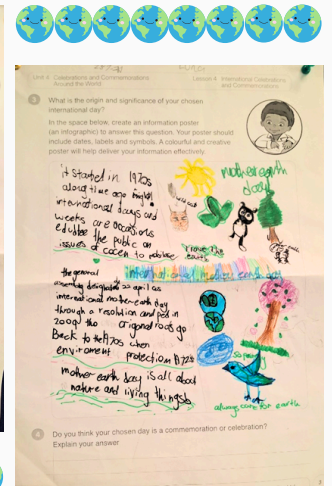 Unit 4 Celebrations and Commemorations
Around the World
Lesson 4 International Celebrations
and Commemorations
3 What is the origin and significance of your chosen
international day?
In the space below, create an information poster
(an infographic) to answer this question. Your poster should
include dates, labels and symbols. A colourful and creative
poster will help deliver your information effectively.
it started in 1970s
along time ago
international days and
weeks are occasions
the public on
issues of
mother earth
day
I love the
earth
international mother earth day
the general
assembly 22 april as
international mother earth day
through a resolution in
2009 the origonal roots go
Back to the 1970s when
enviroment protection
mother earth day is all about
nature and living things
so pretty
always care for earth
4 Do you think your chosen day is a commemoration or celebration?
Explain your answer